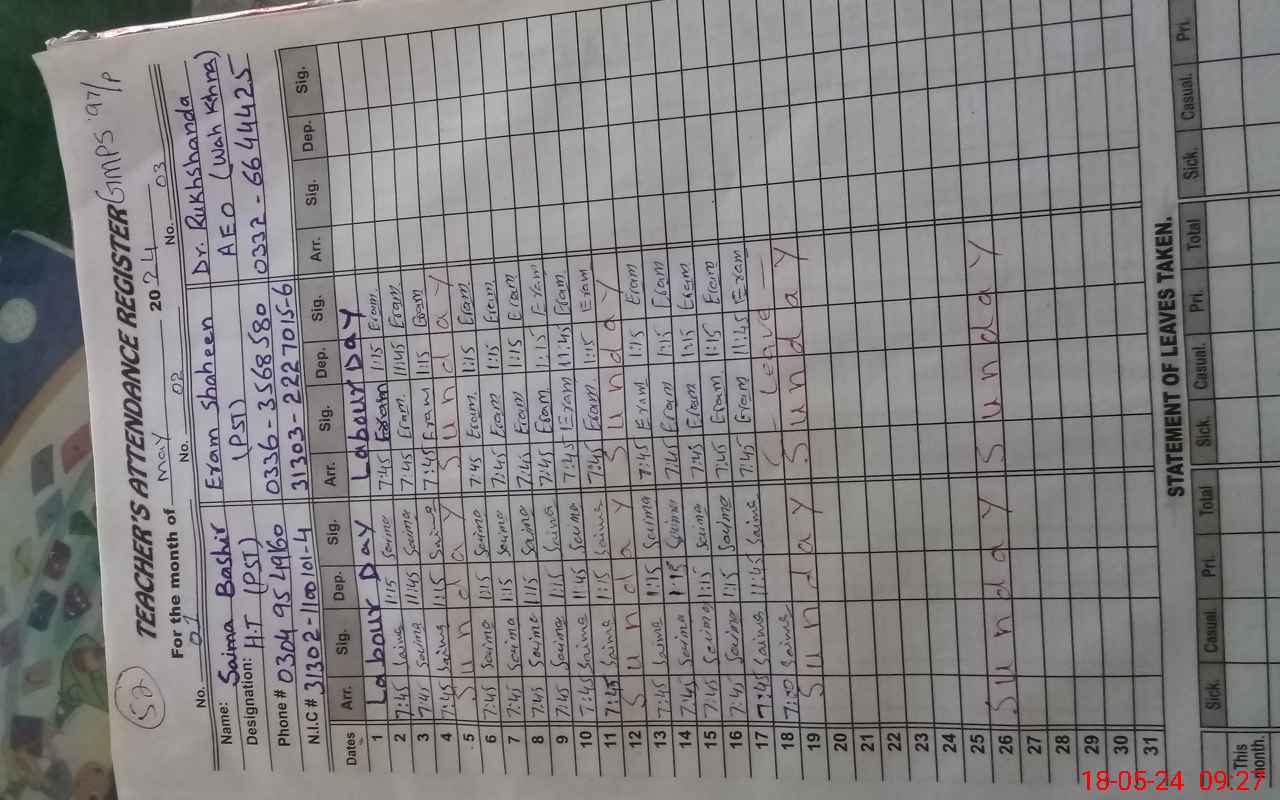 52
TEACHER'S ATTENDANCE REGISTER GMPS 97/P
For the month of May 2024
No. 01 No. 02 No. 03
Name: Saima Bashir Eram Shaheen Dr. Rukhshanda
Designation: H.T (PST) (PST) AEO (Wah Khna)
Phone # 0304 95 49160 0336-3568580 0332-6644425
N.I.C # 31302-1100101-4 31303-2227015-6
Dates Arr. Sig. Dep. Sig. Arr. Sig. Dep. Sig. Arr. Sig. Dep. Sig.
1 Labour Day Labour Day
2 7:45 Saima 1:15 Saima 7:45 Eram 1:15 Eram
3 7:45 Saima 11:45 Saima 7:45 Eram 11:45 Eram
4 7:45 Saima 1:15 Saima 7:45 Eram 1:15 Eram
5 Sunday Sunday
6 7:45 Saima 1:15 Saima 7:45 Eram 1:15 Eram
7 7:45 Saima 1:15 Saima 7:45 Eram 1:15 Eram
8 7:45 Saima 1:15 Saima 7:45 Eram 1:15 Eram
9 7:45 Saima 1:15 Saima 7:45 Eram 1:15 Eram
10 7:45 Saima 11:45 Saima 7:45 Eram 11:45 Eram
11 7:45 Saima 1:15 Saima 7:45 Eram 1:15 Eram
12 Sunday Sunday
13 7:45 Saima 1:15 Saima 7:45 Eram 1:15 Eram
14 7:45 Saima 1:15 Saima 7:45 Eram 1:15 Eram
15 7:45 Saima 1:15 Saima 7:45 Eram 1:15 Eram
16 7:45 Saima 1:15 Saima 7:45 Eram 1:15 Eram
17 7:45 Saima 11:45 Saima 7:45 Eram 11:45 Eram
18 7:00 Saima Leave
19 Sunday Sunday
20
21
22
23
24
25
26 Sunday Sunday
27
28
29
30
31
STATEMENT OF LEAVES TAKEN.
Sick. Casual Pri. Total Sick. Casual. Pri. Total Sick. Casual. Pri.
This month.
18-05-24 09:27